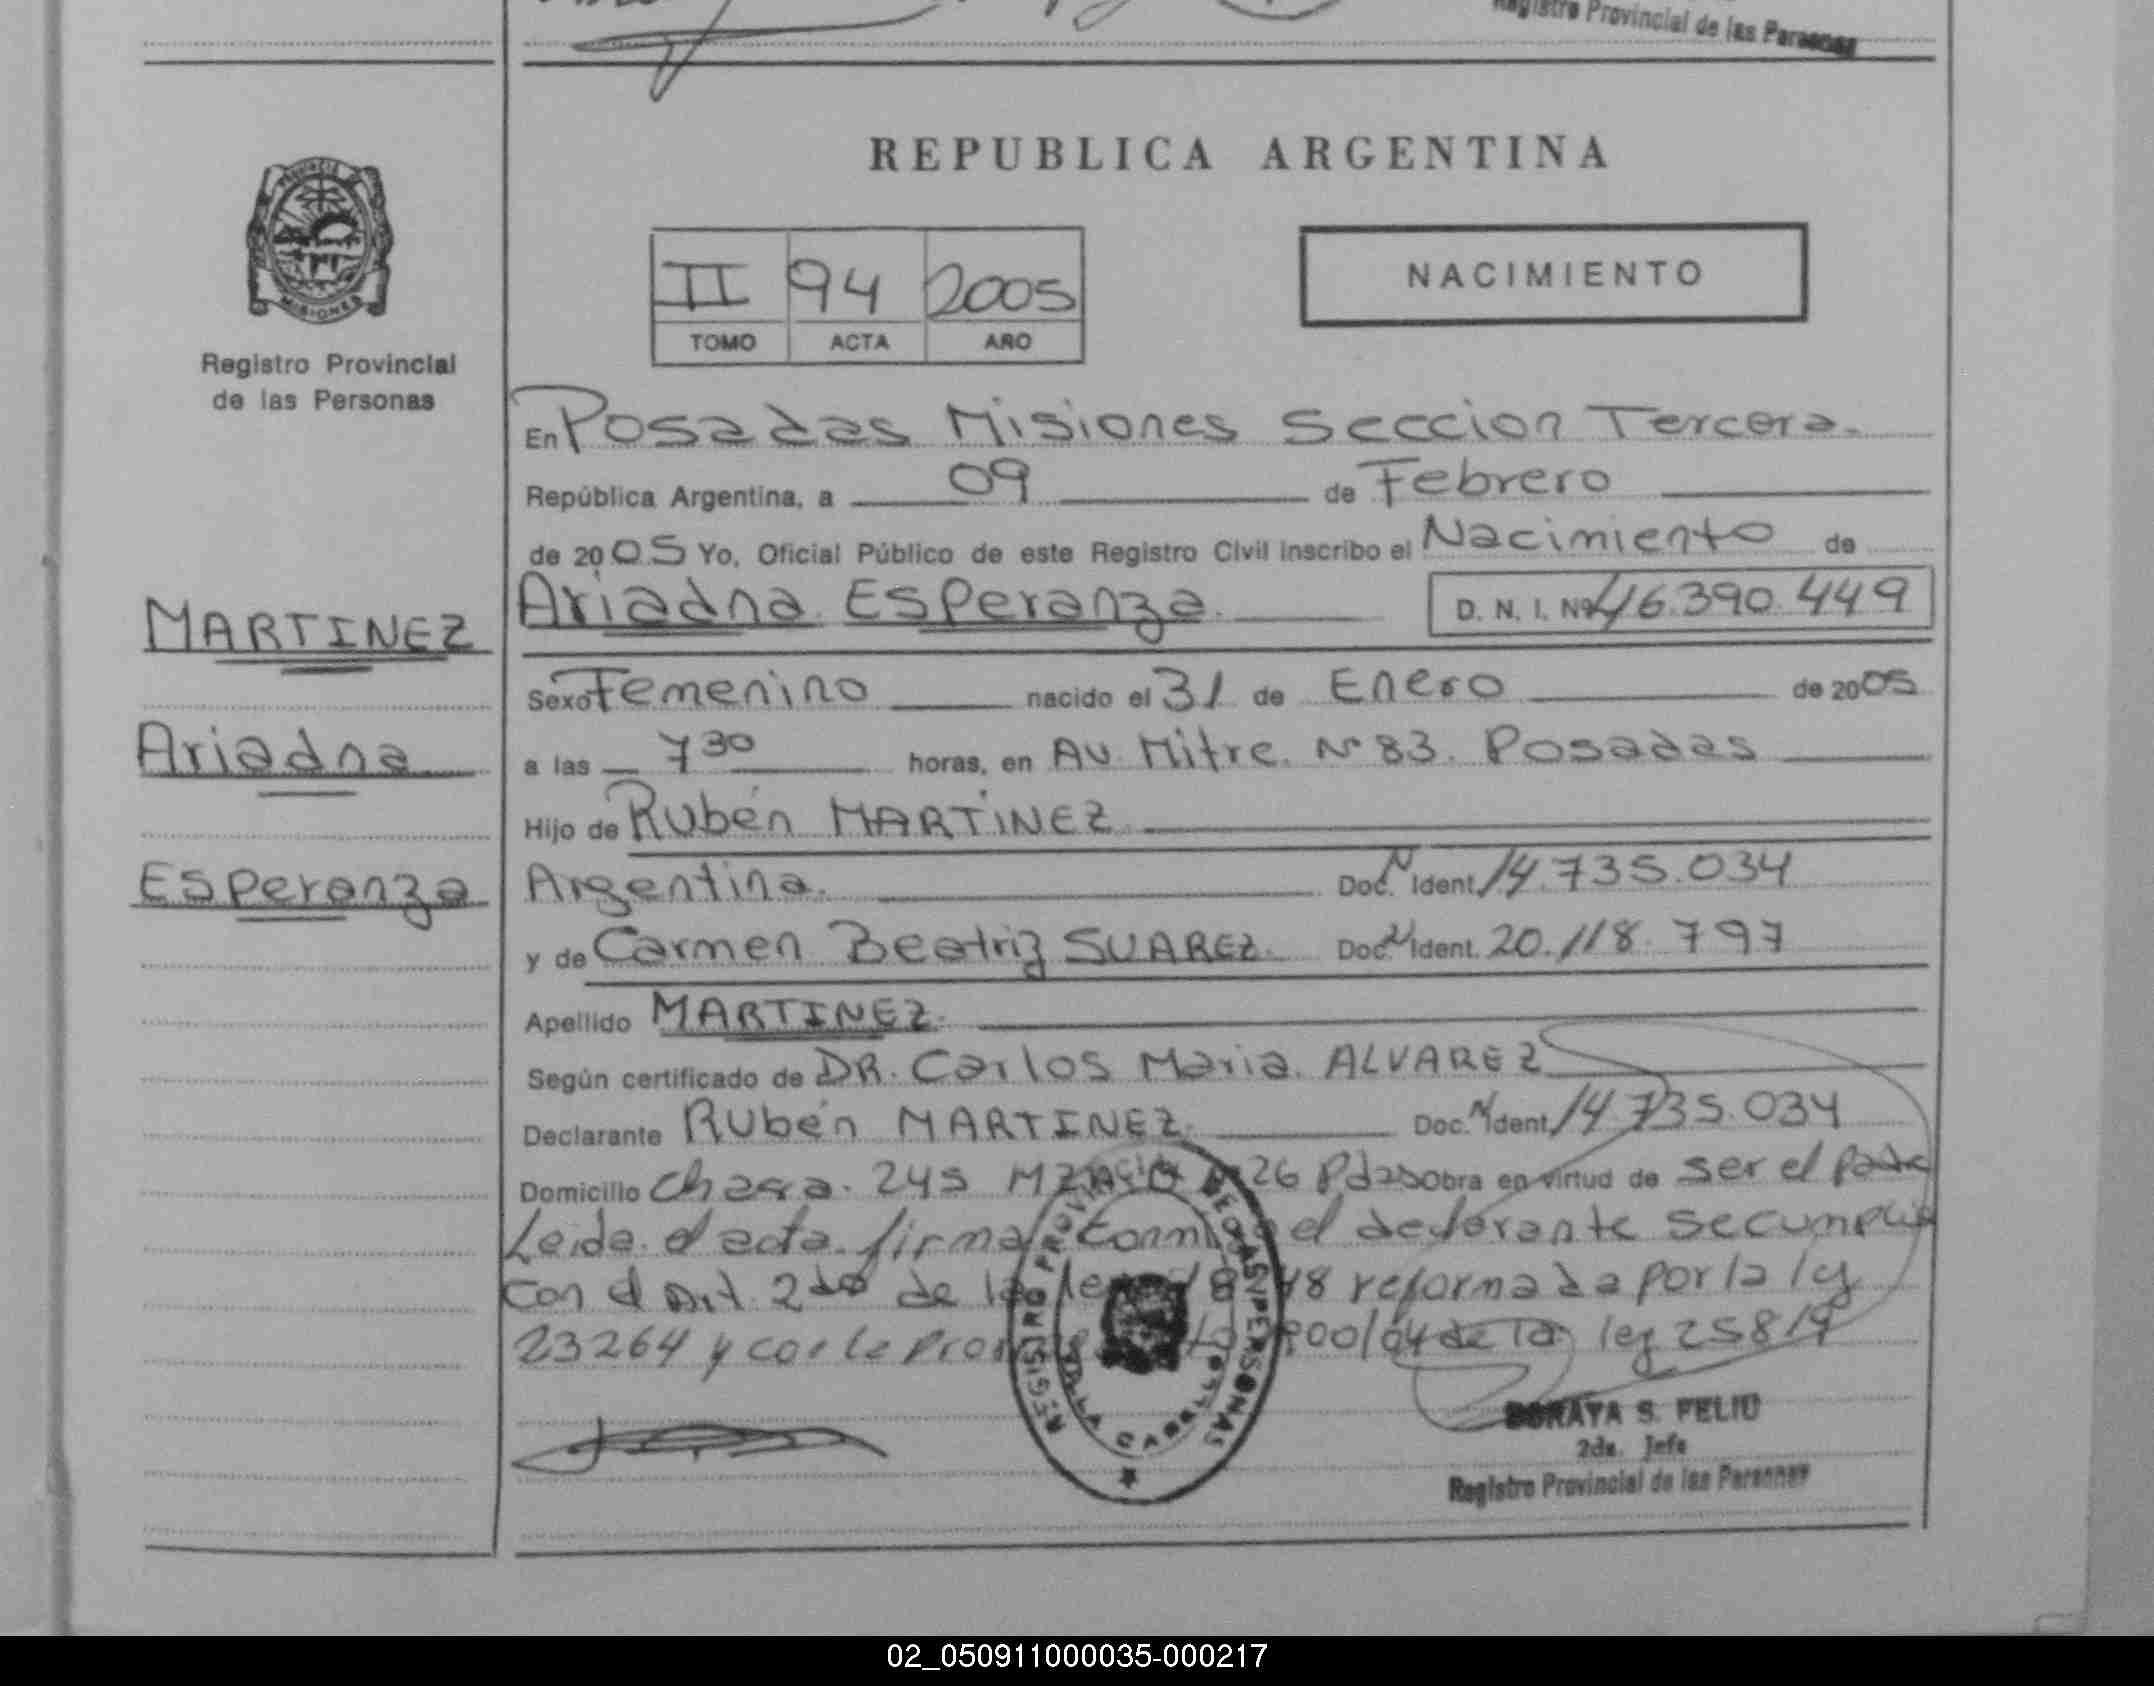 Registro Provincial de las Personas
REPUBLICA ARGENTINA
PROVINCIA DE
MISIONES
II 94 2005
TOMO ACTA AÑO
NACIMIENTO
Registro Provincial
de las Personas
En Posadas Misiones Seccion Tercera.
República Argentina, a 09 de Febrero
de 2005 Yo, Oficial Público de este Registro Civil inscribo el Nacimiento de
MARTINEZ
Ariadna Esperanza. D. N. I. Nº 46.390.449
Sexo Femenino nacido el 31 de Enero de 2005
Ariadna
a las 7 30 horas, en Av. Mitre. Nº 83. Posadas
Hijo de Rubén MARTINEZ
Esperanza
Argentina. Doc. N Ident. 14.735.034
y de Carmen Beatriz SUAREZ. Doc. N Ident. 20.118.797
Apellido MARTINEZ.
Según certificado de DR. Carlos Maria ALVAREZ
Declarante Rubén MARTINEZ. Doc. N Ident. 14.735.034
Domicilio Chacra. 245 26 Pdas obra en virtud de ser el padre
Leida el acta. firma el declarante se cumplio
con el Art. 2do de la 48 reformada por la ley
23264 y con le 900/04 de la ley 25819
REGISTRO PROVINCIAL DE LAS PERSONAS
VILLA CABELLO
SORAYA S. FELIU
2da. Jefe
Registro Provincial de las Personas
02_050911000035-000217